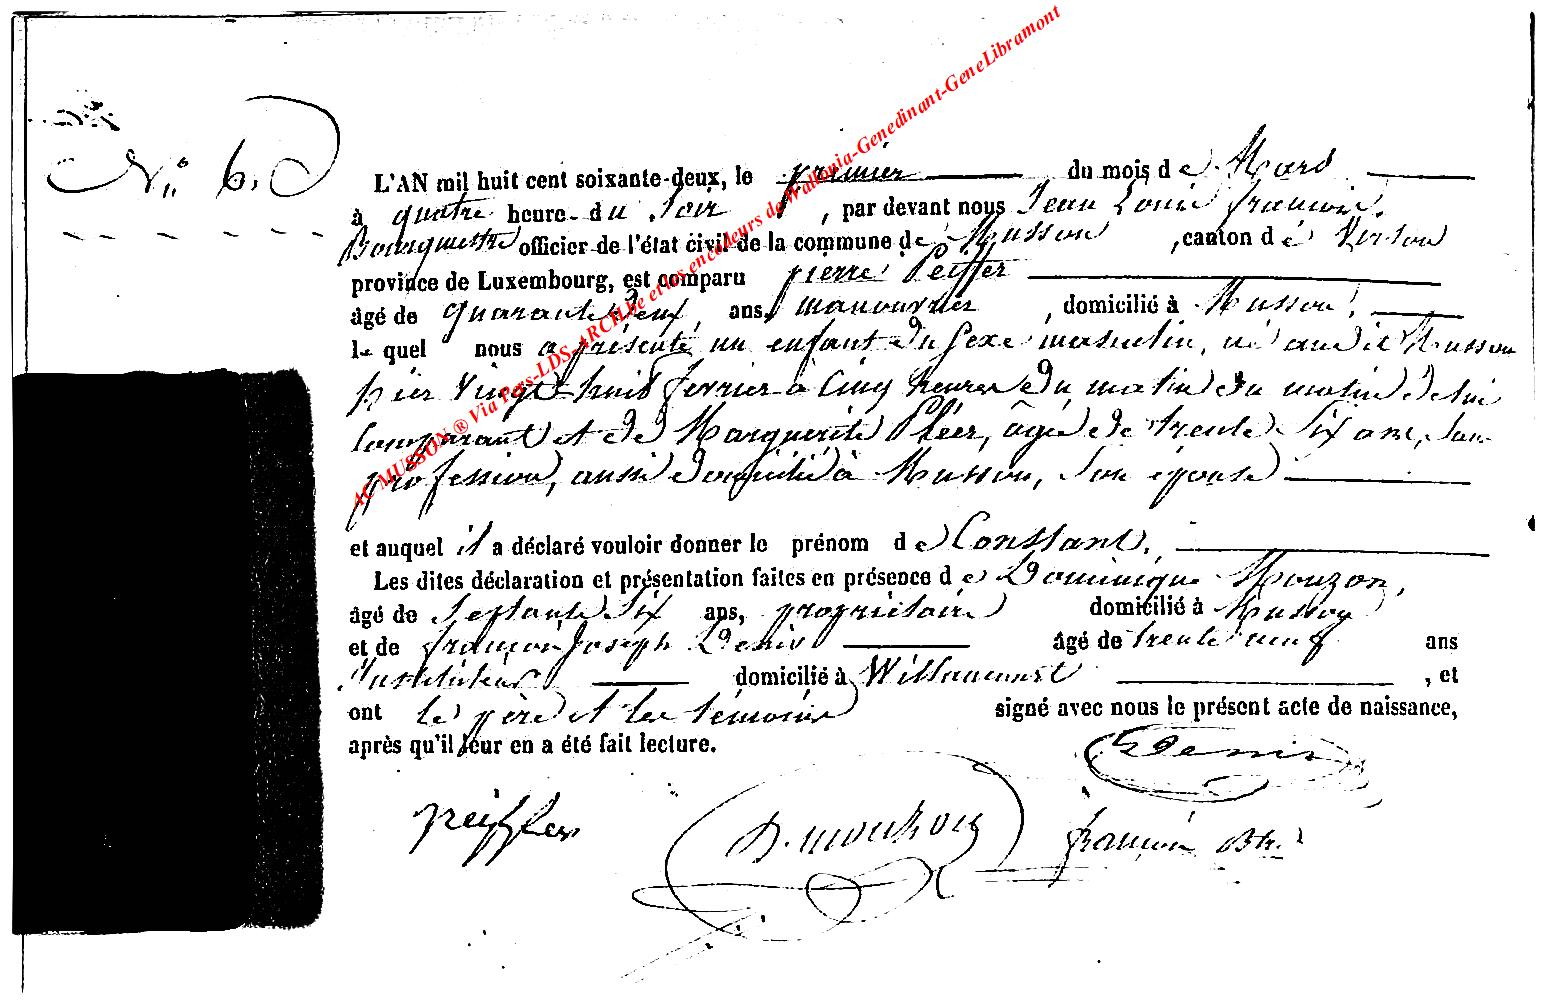 N° 6.
L'AN mil huit cent soixante-deux, le premier du mois de Mars
à quatre heure du soir, par devant nous Jean Louis françois
Bourguette officier de l'état civil de la commune de Musson, canton de Virton
province de Luxembourg, est comparu pierre Peiffer
âgé de quarante deux ans, manouvrier, domicilié à Musson,
le quel nous a présenté un enfant du sexe masculin, né audit Musson
hier vingt huit fevrier à cinq heures du matin du matin de lui
comparant et de Marguerite Pléer, âgée de trente six ans, sans
profession, aussi domicilié à Musson, son épouse
et auquel il a déclaré vouloir donner le prénom de Constant.
Les dites déclaration et présentation faites en présence de Dominique Mouzon,
âgé de septante six ans, propriétaire domicilié à Musson
et de françois Joseph Denis âgé de trente neuf ans
Instituteur domicilié à Willancourt, et
ont le père et les témoins signé avec nous le présent acte de naissance,
après qu'il leur en a été fait lecture.
Denis
peiffer
D. mouzon
françois
AC MUSSON ® Via Pers-LDS-ARCH.be et les encodeurs de Wallonia-Genedinant-GeneLibramont